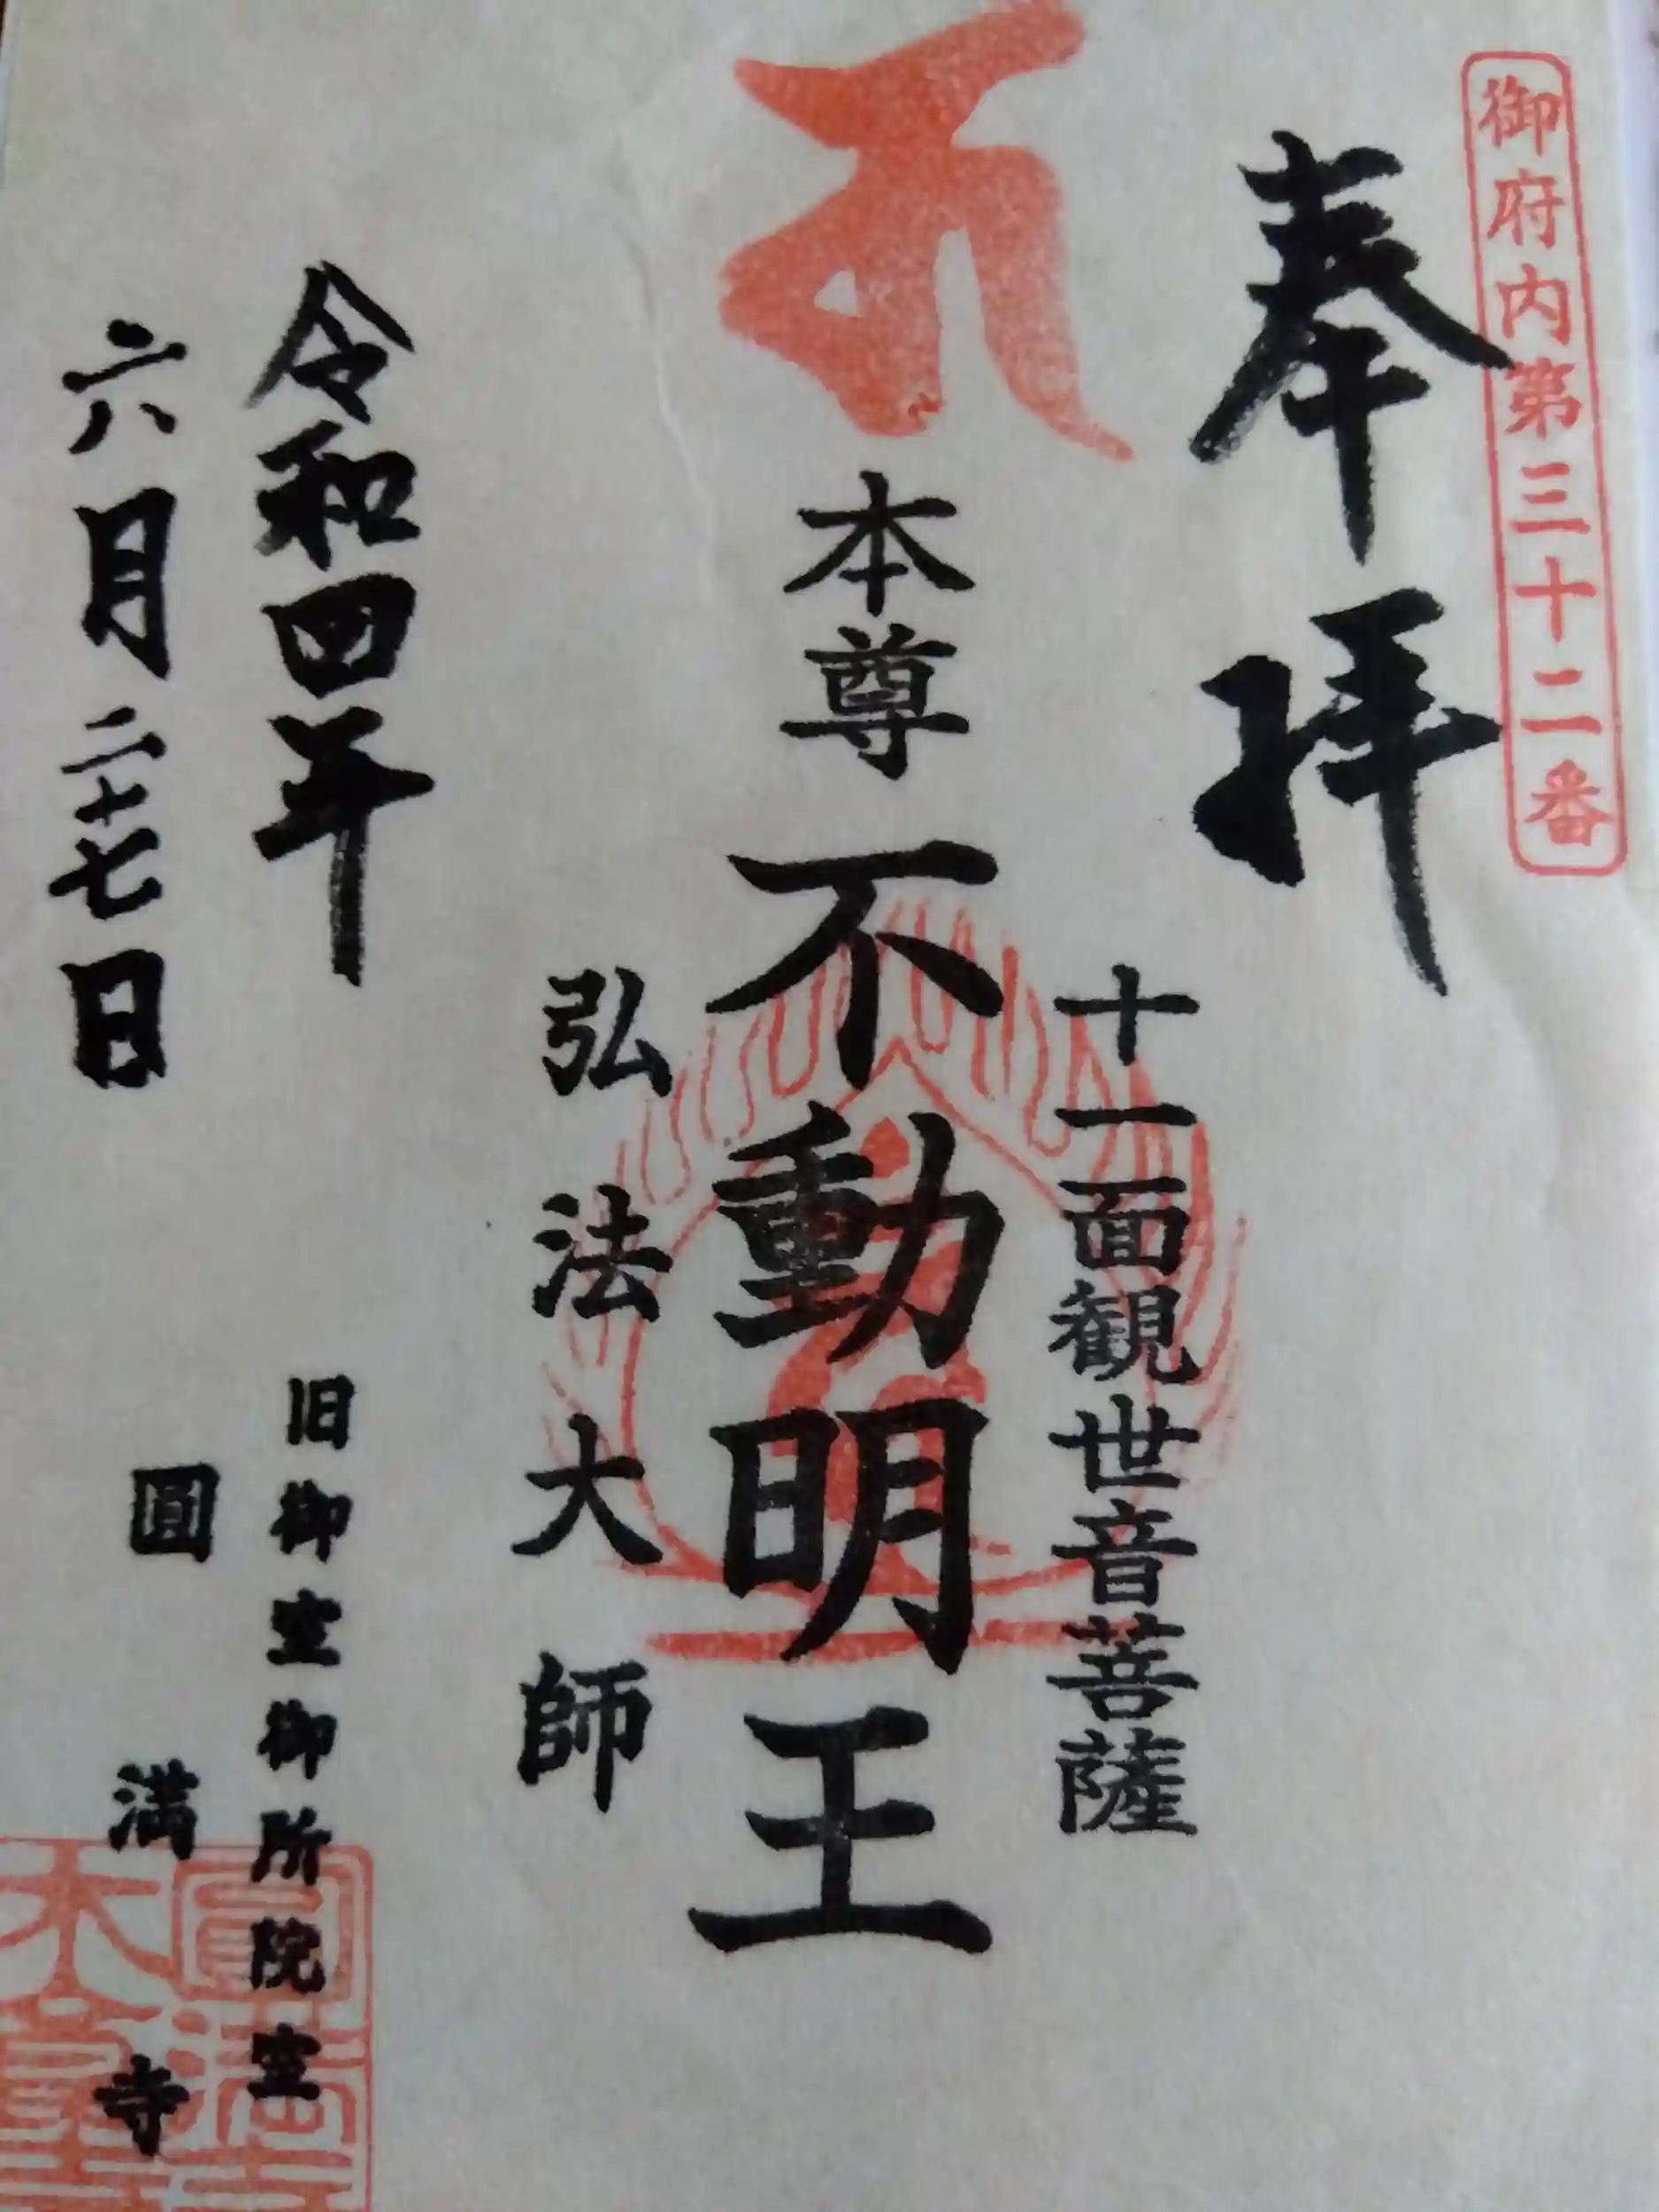 御府内第三十二番
奉拝
十一面観世音菩薩
本尊 不動明王
弘法大師
令和四年
六月二十七日
旧御室御所院室
圓満寺